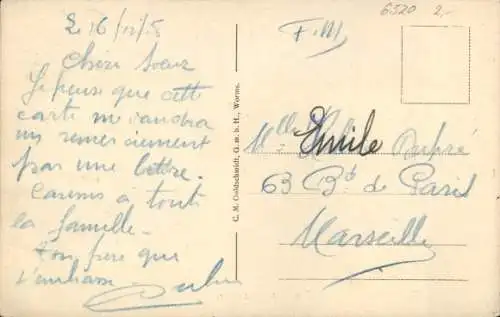 Le 16/12/18
Chère Soeur
Je pense que cette
carte m'vaudra
un remerciement
par une lettre.
à toute
la famille.
Ton frère que
t'embrasse
G. M. Goldschmidt, G. m. b. H., Worms.
6520 2,-
F.M
Mlle Emile Dupré
63 Bd de Paris
Marseille